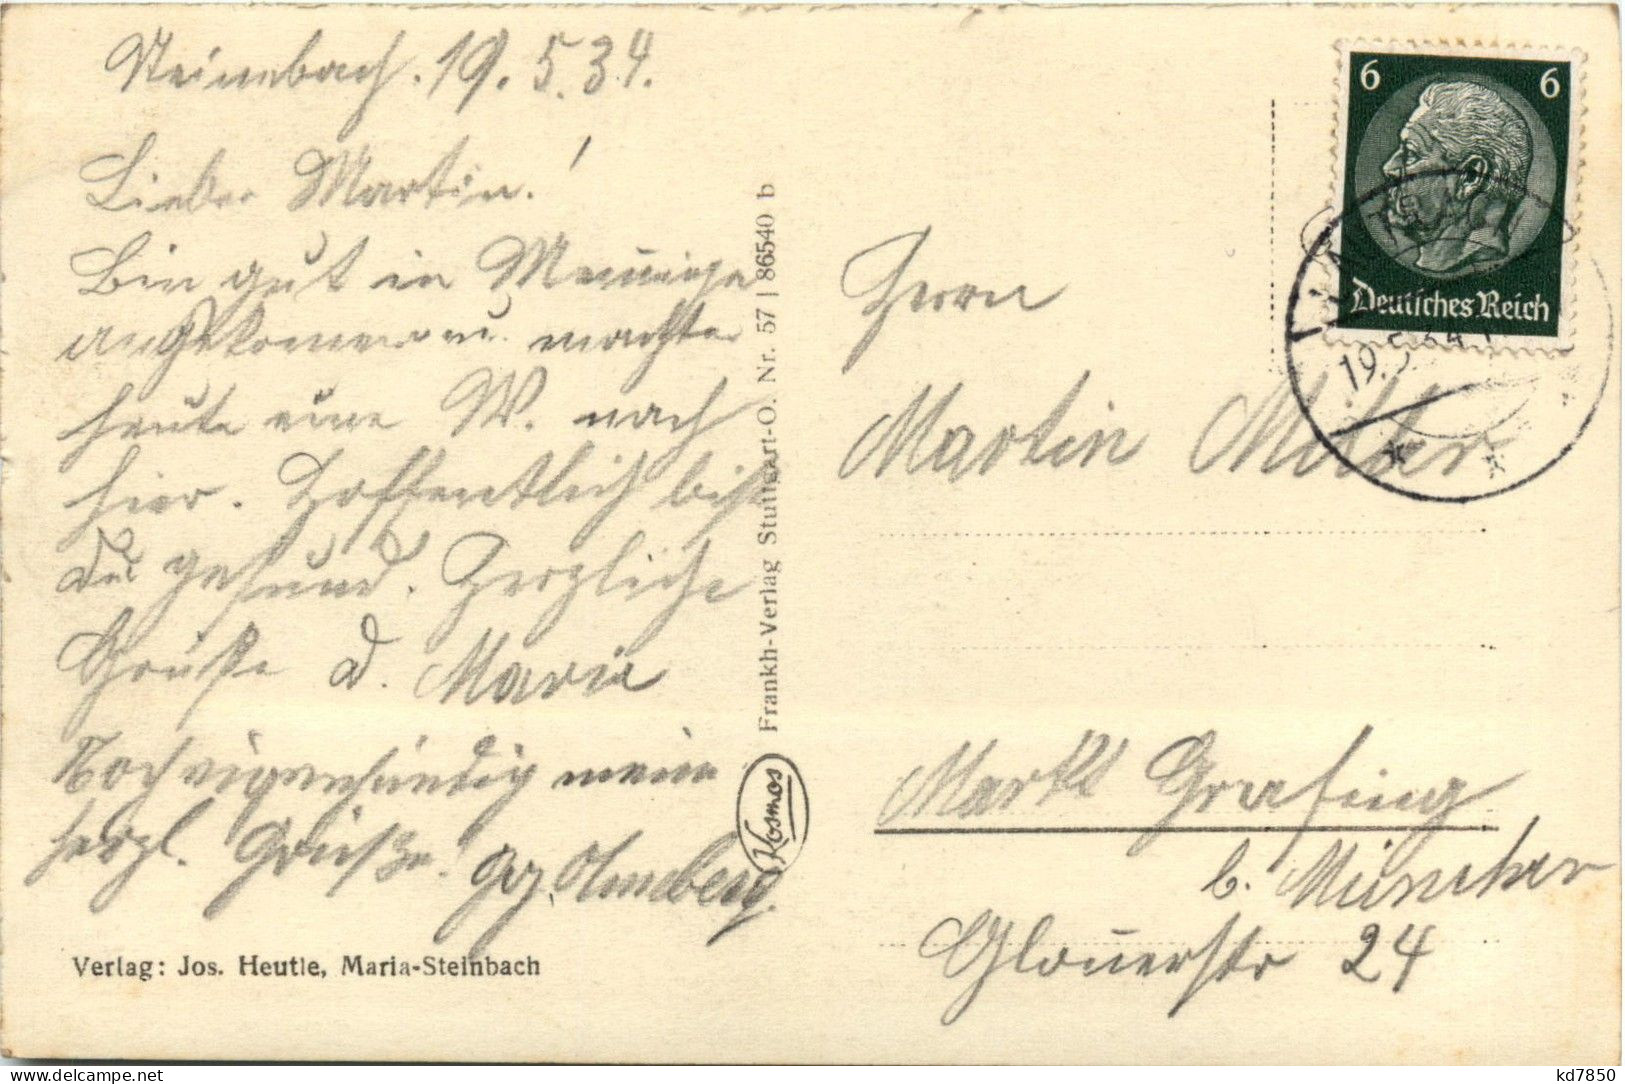 Steinbach. 19.5.34.
Lieber Martin!
Bin gut in
angekommen u. machte
heute eine W. nach
hier. Hoffentlich bist
Du gesund. Herzliche
Grüße d. Maria
Noch eigenhändig meine
herzl. Grüße.
Verlag: Jos. Heutle, Maria-Steinbach
Frankh-Verlag Stuttgart-O. Nr. 57 | 86540 b
Kosmos
6 6
Deutsches Reich
19.5.34.
Herrn
Martin Miller
Markt Grafing
b. München
Glonnerstr 24
kd7850